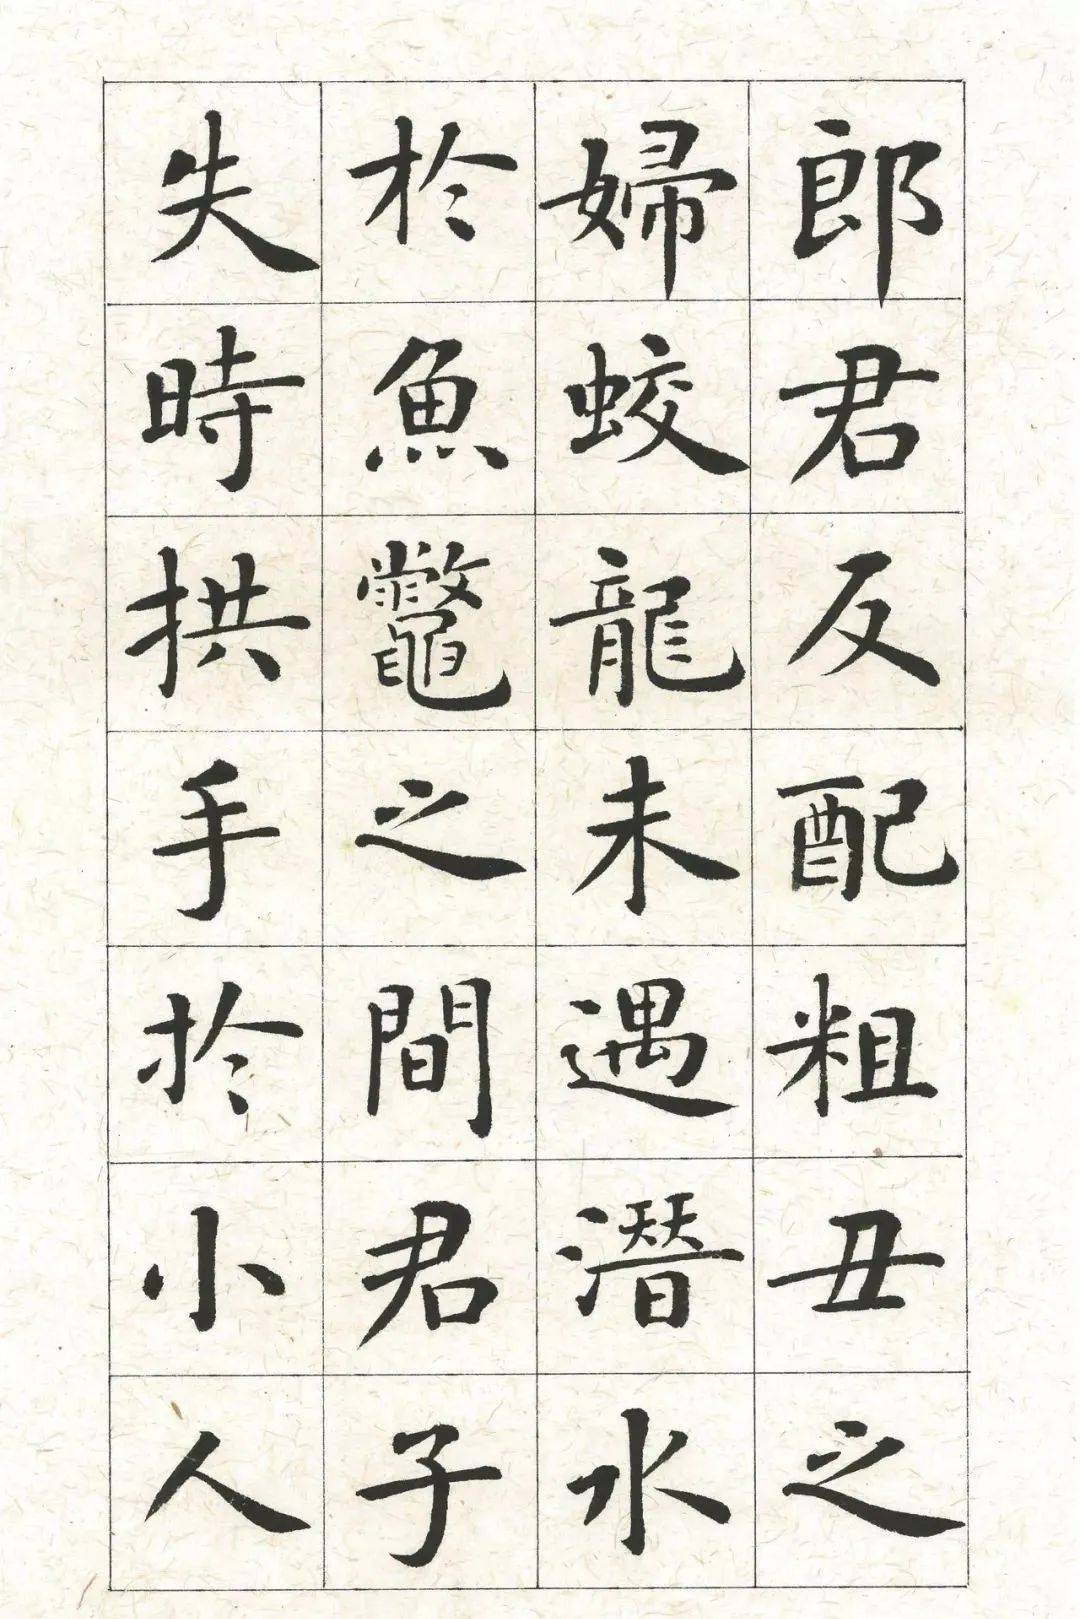 郎君反配粗丑之
婦蛟龍未遇潛水
於魚鼈之間君子
失時拱手於小人